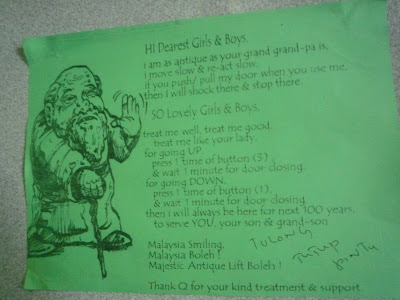 HI Dearest Girls & Boys,
i am as antique as your grand grand-pa is,
i move slow & re-act slow,
if you push/ pull my door when you use me,
then i will shock there & stop there.
SO Lovely Girls & Boys,
treat me well, treat me good,
treat me like your lady,
for going UP,
press 1 time of button (3)
& wait 1 minute for door closing,
for going DOWN,
press 1 time of button (1),
& wait 1 minute for door closing
then i will always be here for next 100 years,
to serve YOU, your son & grand-son
Malaysia Smiling,
Malaysia Boleh !
Majestic Antique Lift Boleh !
TULONG
TUTUP
PINTU
Thank Q for your kind treatment & support